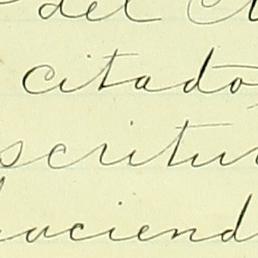 del
citado
scritu
aciend